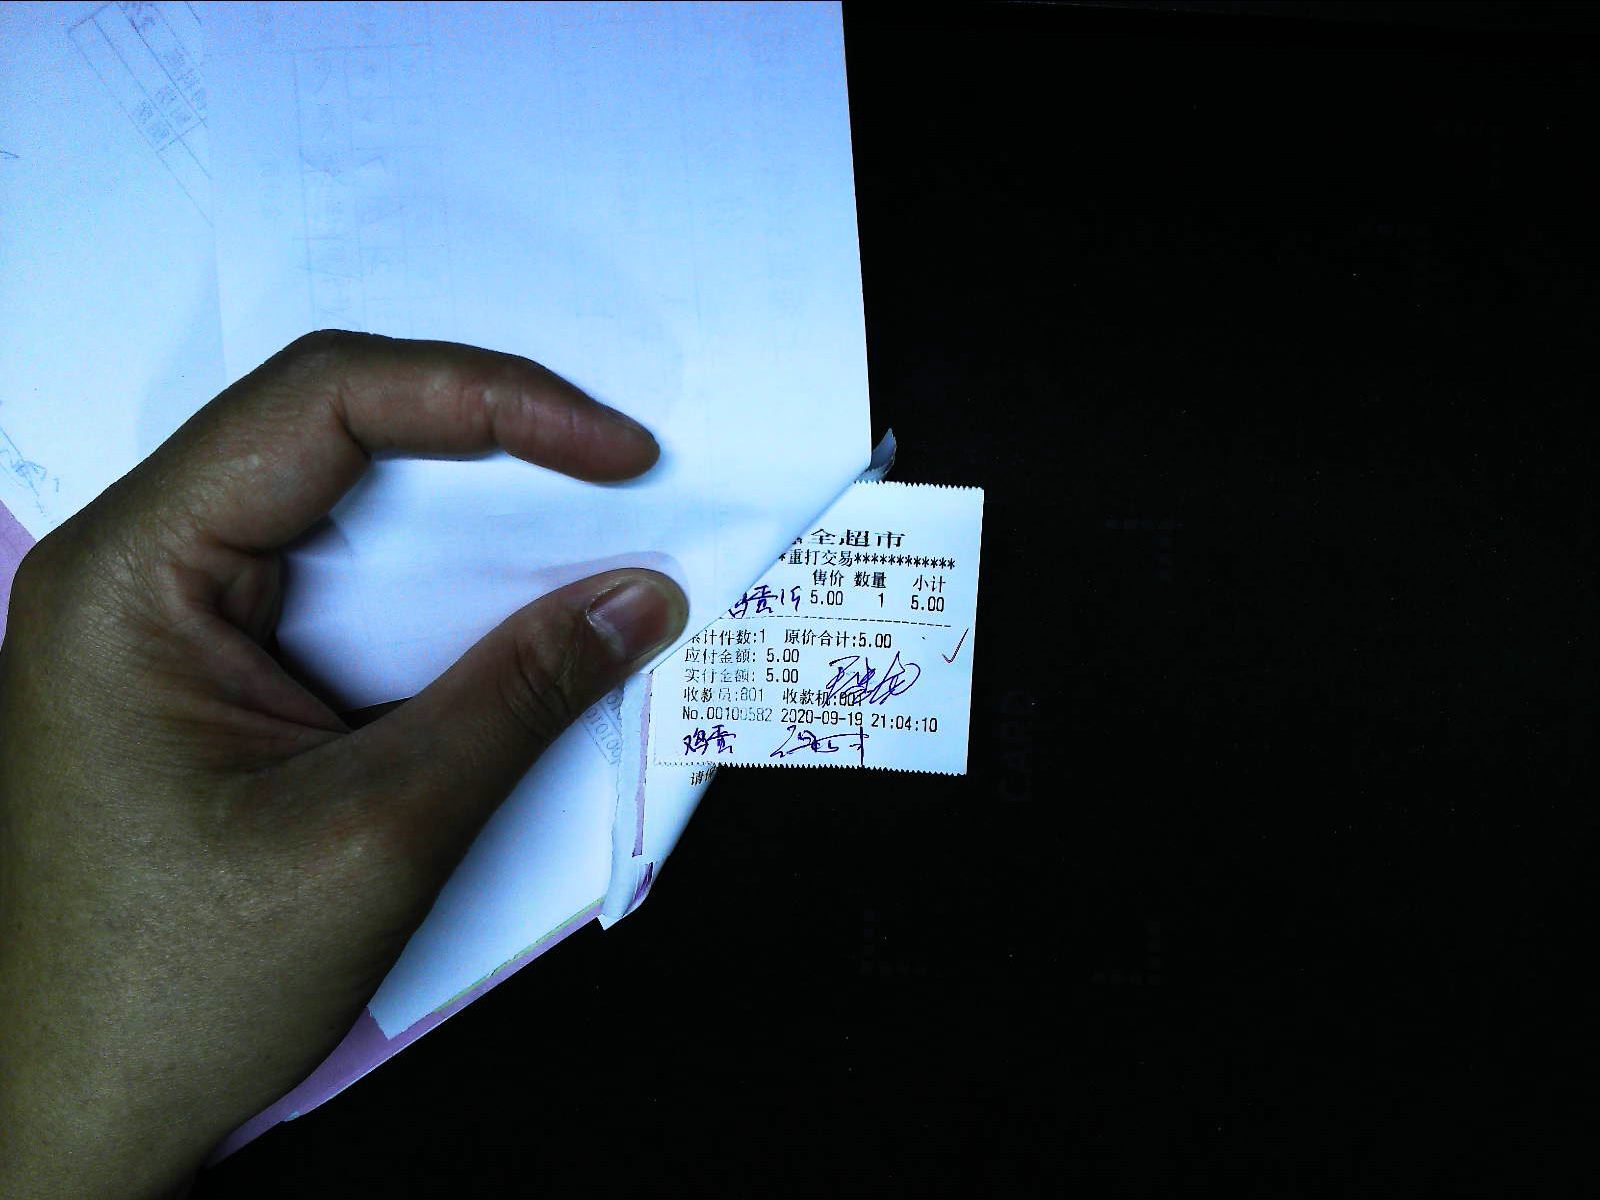 全超市
*重打交易************
售价 数量 小计
鸡蛋1斤 5.00 1 5.00
累计件数:1 原价合计:5.00
应付金额: 5.00
实付金额: 5.00
收款员:801 收款机:001
No.00100582 2020-09-19 21:04:10
鸡蛋
请